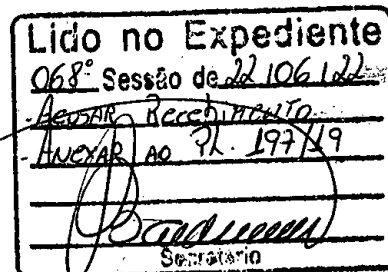 Lido no Expediente
068ª Sessão de 22/06/22
- ACUSAR Recebimento
- ANEXAR AO PL. 197/19
Secretário